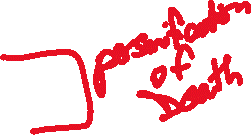 personification
of
Death